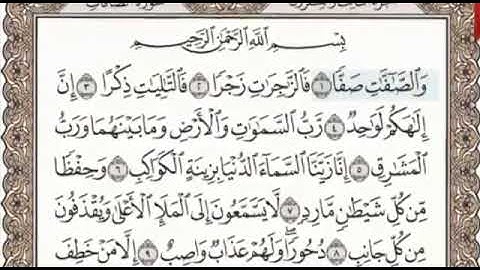 بِسْمِ اللَّهِ الرَّحْمَٰنِ الرَّحِيمِ
وَالصَّافَّاتِ صَفًّا ١ فَالزَّاجِرَاتِ زَجْرًا ٢ فَالتَّالِيَاتِ ذِكْرًا ٣ إِنَّ
إِلَٰهَكُمْ لَوَاحِدٌ ٤ رَبُّ السَّمَاوَاتِ وَالْأَرْضِ وَمَا بَيْنَهُمَا وَرَبُّ
الْمَشَارِقِ ٥ إِنَّا زَيَّنَّا السَّمَاءَ الدُّنْيَا بِزِينَةٍ الْكَوَاكِبِ ٦ وَحِفْظًا
مِّن كُلِّ شَيْطَانٍ مَّارِدٍ ٧ لَّا يَسَّمَّعُونَ إِلَى الْمَلَإِ الْأَعْلَىٰ وَيُقْذَفُونَ
مِن كُلِّ جَانِبٍ ٨ دُحُورًا ۖ وَلَهُمْ عَذَابٌ وَاصِبٌ ٩ إِلَّا مَنْ خَطِفَ